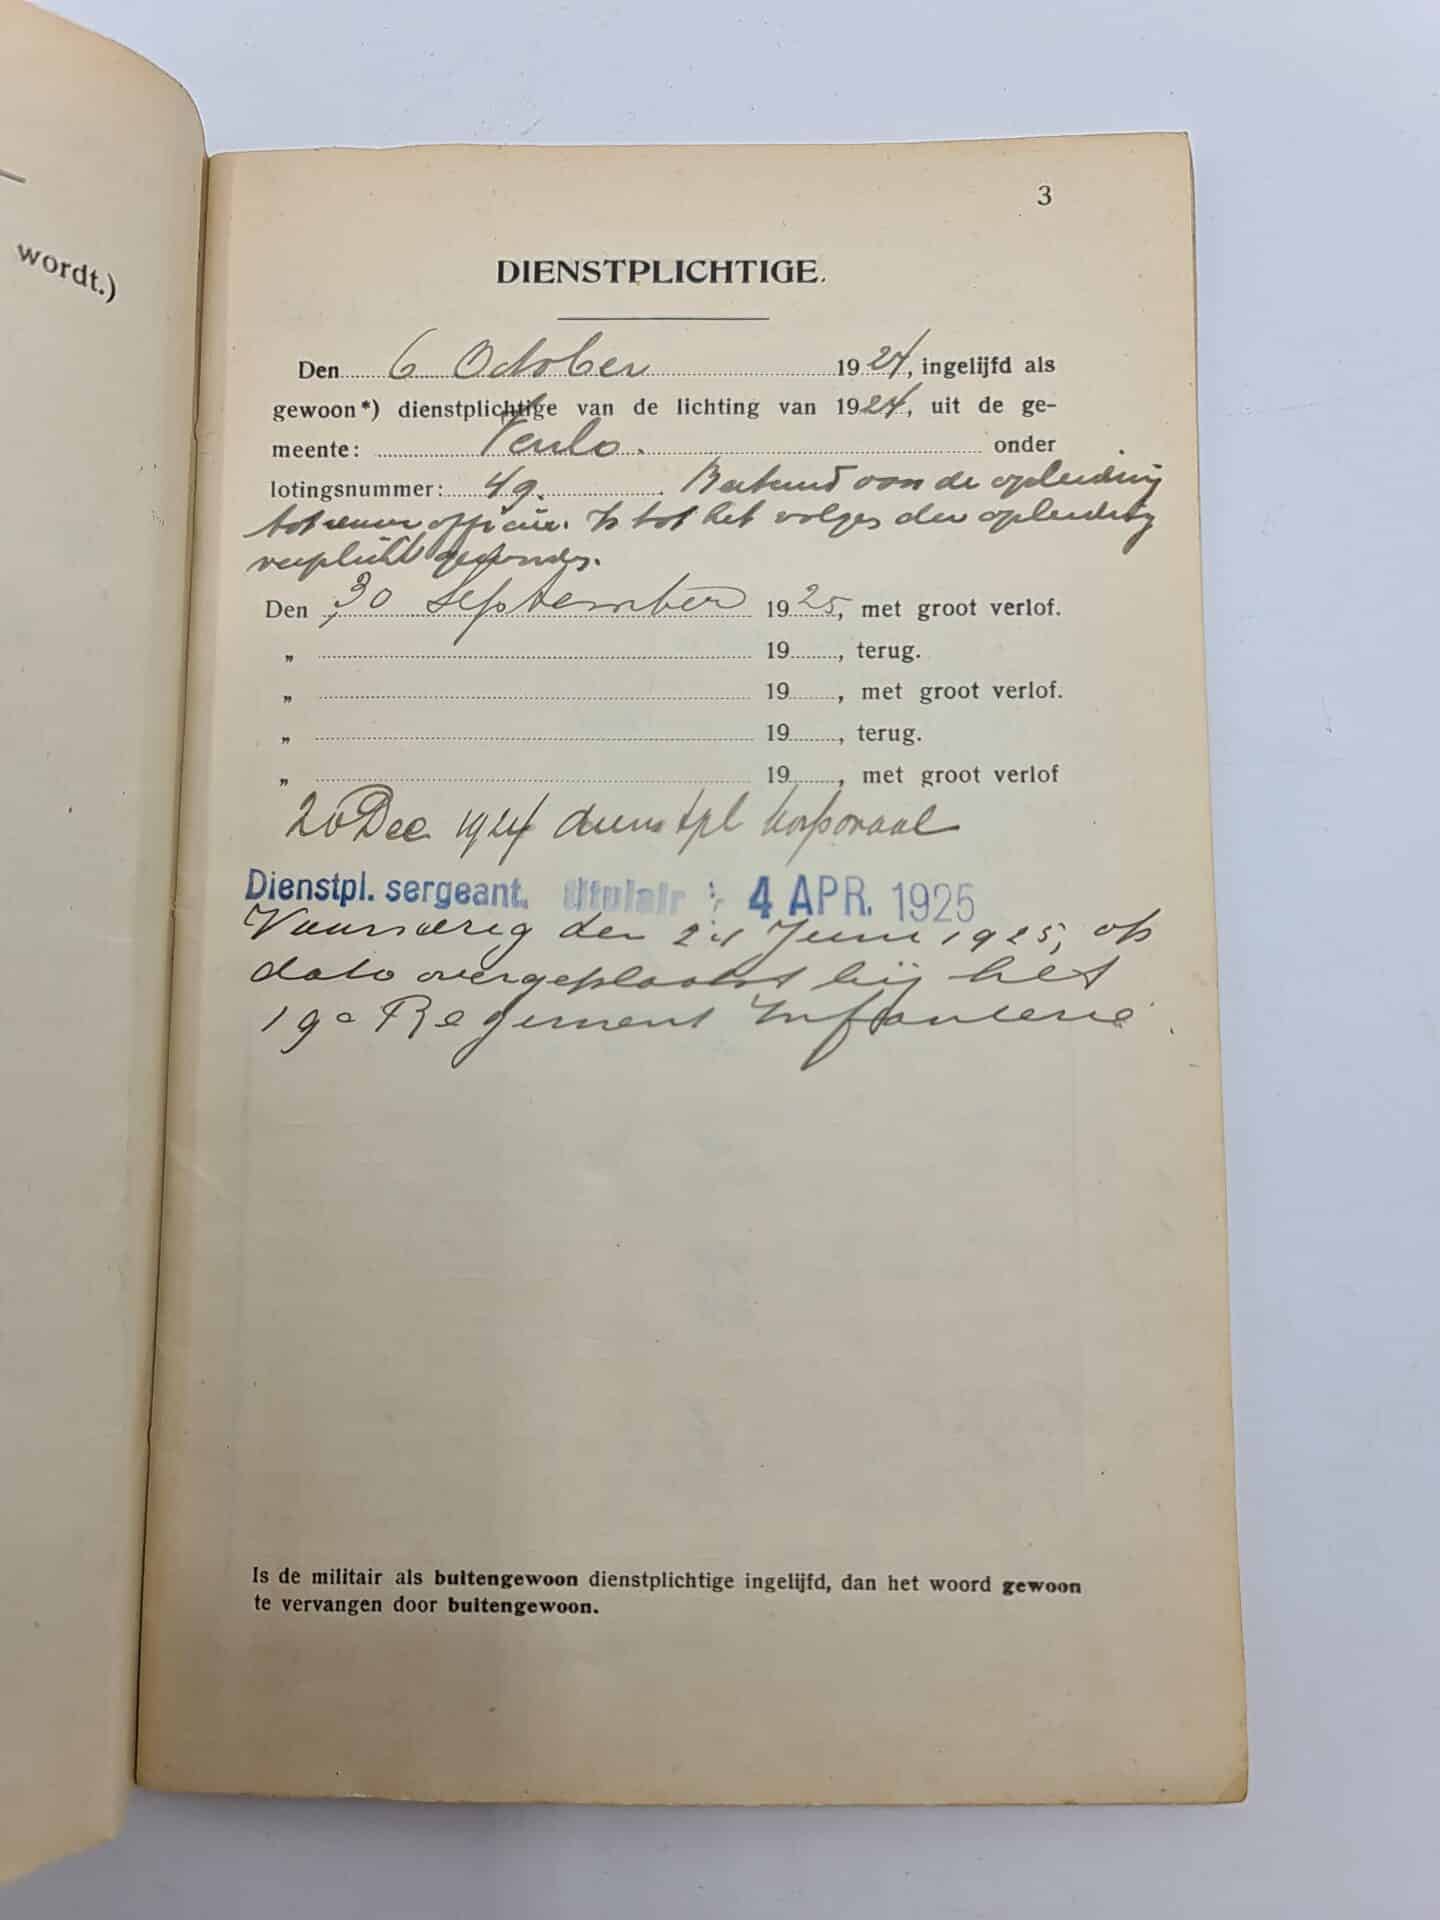 wordt.)
3
DIENSTPLICHTIGE.
Den 6 October 1924, ingelijfd als
gewoon*) dienstplichtige van de lichting van 1924, uit de ge-
meente: Venlo. onder
lotingsnummer: 49. Bestemd voor de opleiding
tot officier. Is tot het volgen der opleiding
verplicht geworden.
Den 30 September 1925, met groot verlof.
„ 19, terug.
„ 19, met groot verlof.
„ 19, terug.
„ 19, met groot verlof
20 Dec 1924 dienstpl korporaal
Dienstpl. sergeant. titulair 4 APR. 1925
Vaarwerig den 24 Juni 1925, op
dato overgeplaatst bij het
19e Regiment Infanterie.
Is de militair als buitengewoon dienstplichtige ingelijfd, dan het woord gewoon
te vervangen door buitengewoon.